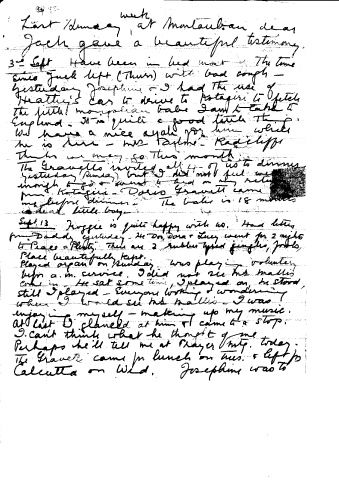 week
Last Sunday, at Montauban, dear
Jack gave a beautiful testimony.
3rd Sept Have been in bed most of the time
since Jack left (Thurs) with bad cough -
Yesterday Josephine & I had the use of
Heather's car to drive to Kotagiri to fetch
the little baby I am to take to
England. It is quite a good little thing.
We have a nice ayah for him while
he is here - Mrs Taylor.
this month.
The Gravetts invited all of us to dinner
yesterday but I did not feel well
enough to go & went to bed on my return
from Kotagiri - Doris Gravett came
before dinner. The baby is 18 months
dear little boy.
Sept 13 Froggie is quite happy with us. Had letter
from Daddy yesterday. He, Dora & Lucy went for 2 nights
to
Place beautifully kept.
Played organ on Sunday. Was playing voluntary
before a.m. service. I did not see Mr Mallis
come in. He sat some time, I played on, He stood,
still I played - Everyone looking & wondering
when I would see Mr Mallis - I was
enjoying myself - making up my music.
At last I glanced at him & came to a stop.
I can't think what he thought of me
Perhaps he'll tell me at Prayer Mtg. today.
The Gravetts came for lunch on Tues. & left for
Calcutta on Wed. Josephine was to